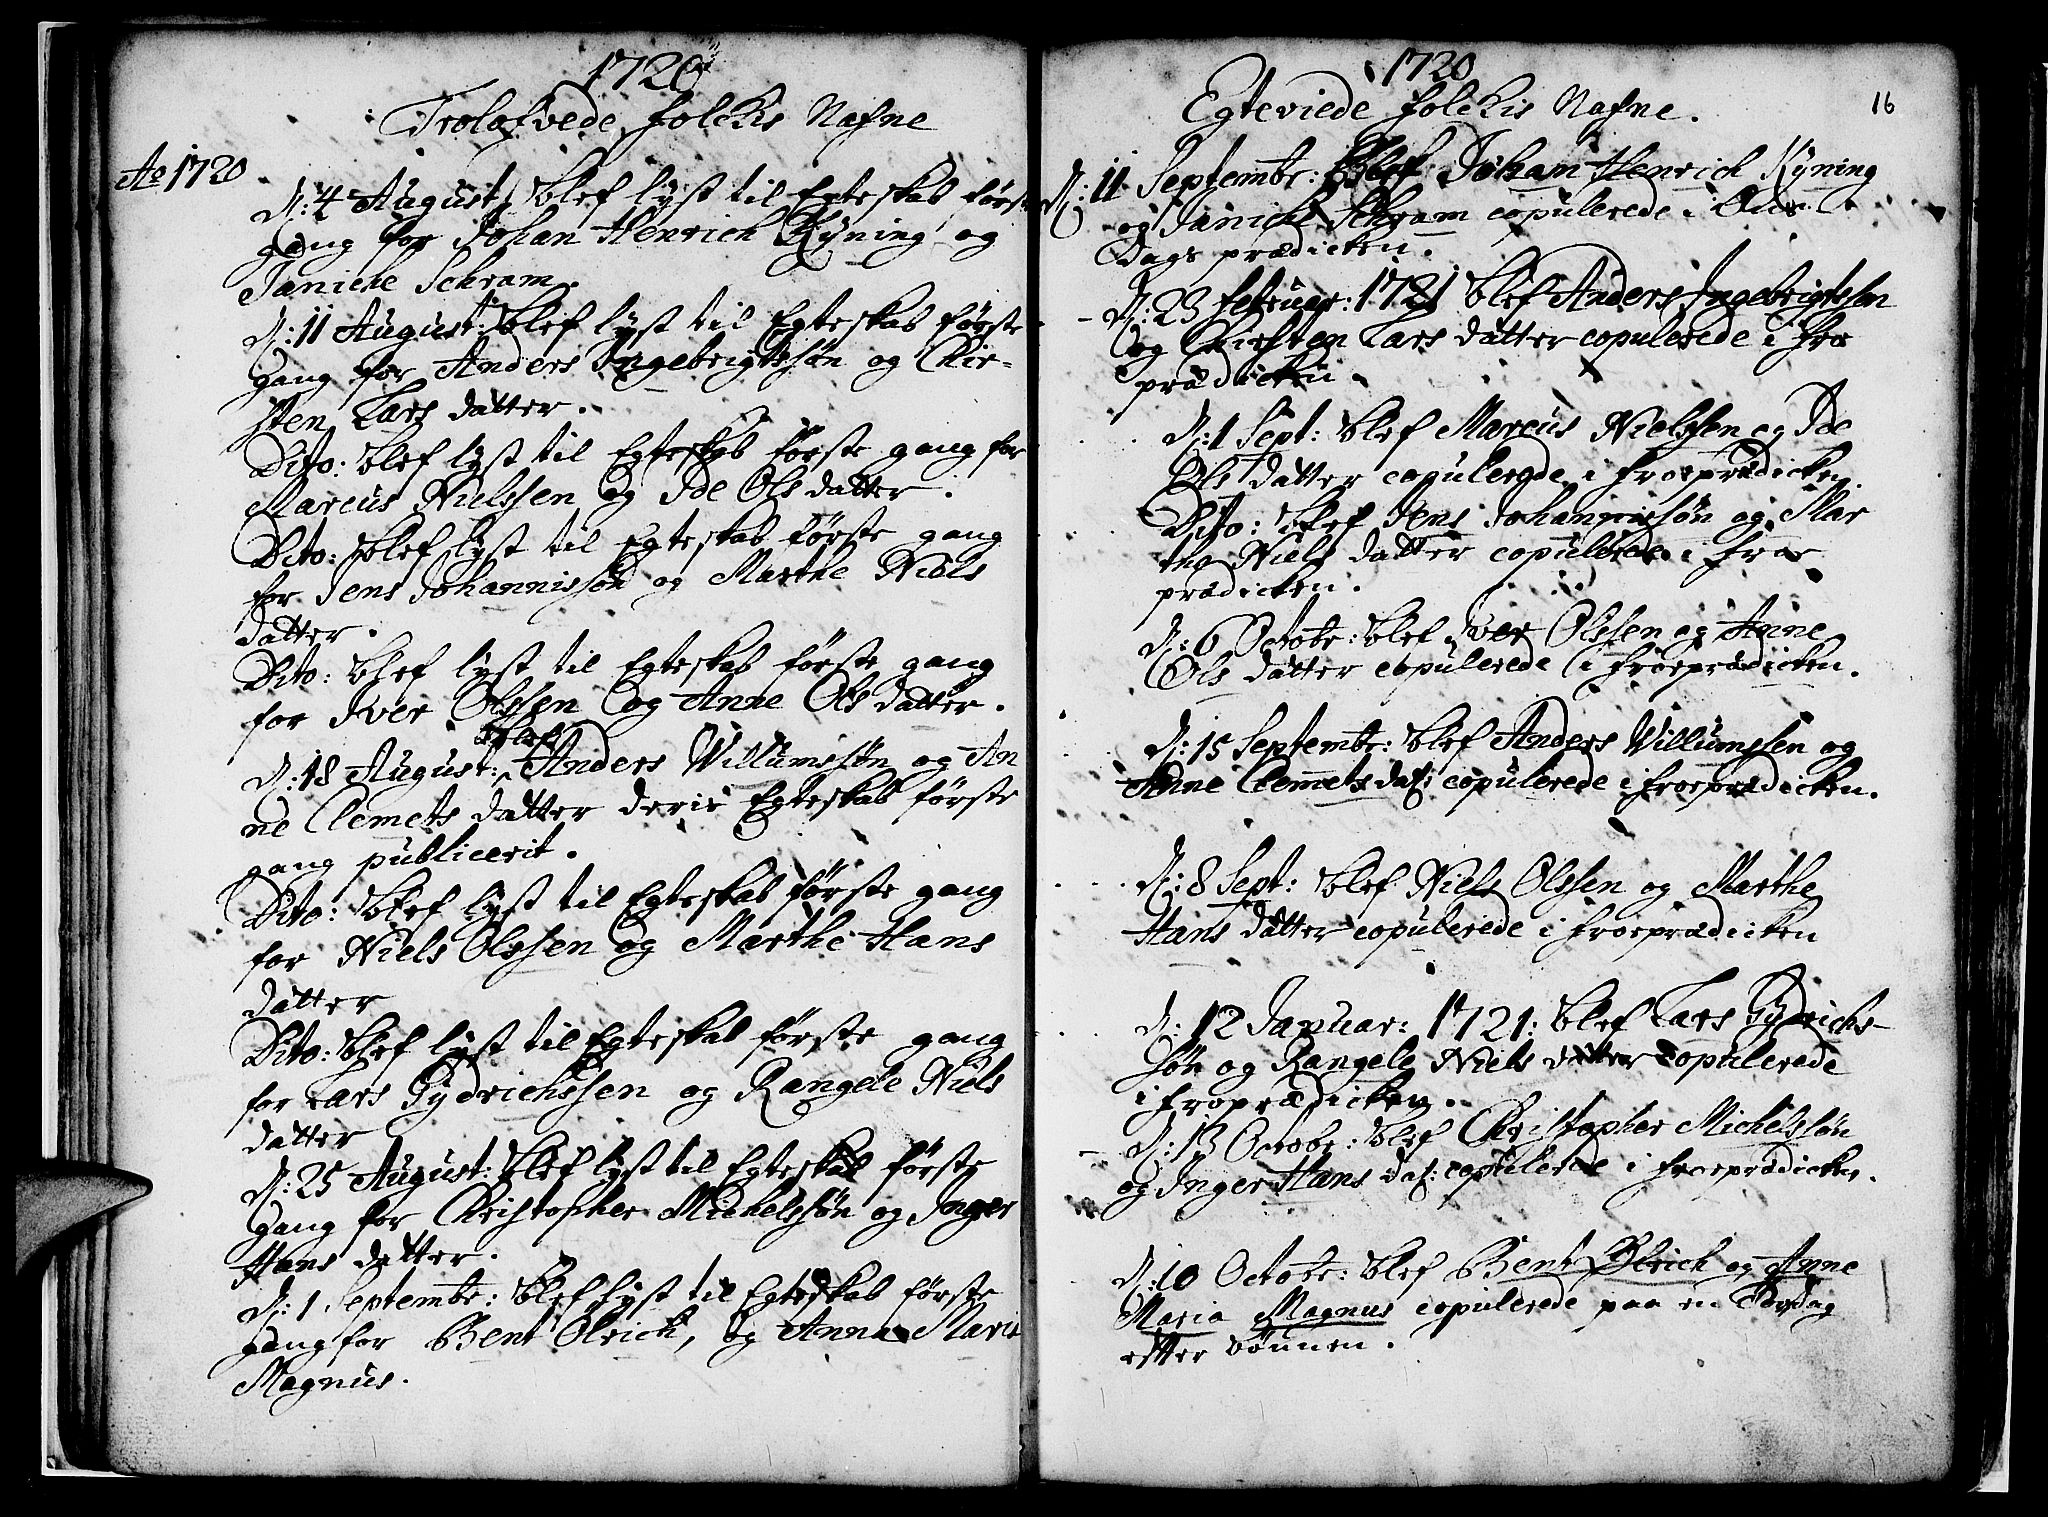 1720
Trolofvede folckis Nafne
Ao 1720
D: 4 August Blef lyst til Egteskab første
gang for Johan Henrich Kyning og
Janiche Schram.
D: 11 August: Blef lyst til Egteskab første
gang for Anders Ingebrigtssøn og Chir-
sten Lars datter.
Dito: blef lyst til Egteskab første gang for
Marcus Nielssen og Ide Ols datter.
Dito: blef lyst til Egteskab første gang
for Jens Johannissøn og Marthe Niels
datter.
Dito: blef lyst til Egteskab første gang
for Iver Olssen og Anne Ols datter.
blef
D: 18 August: Anders Willumssøn og An
ne Clemets datter deris Egteskab første
gang publicerit.
Dito: blef lyst til Egteskab første gang
for Niels Olssen og Marthe Hans
datter
Dito: blef lyst til Egteskab første gang
for Lars Tydrichssen og Rangele Niels
datter
D: 25 August: blef lyst til Egteskab første
gang for Christopher Michelssøn og Inger
Hans datter.
D: 1 Septembr: blef lyst til Egteskab første
gang for Bent Olrich, og Anna Maria
Magnus.
1720
Egteviede folckis Nafne.
16
D: 11 Septembr: Blef Johan Henrich Kyning
og Janiche Schram copulerede i Ons
dags prædicken.
D: 23 februar: 1721 blef Anders Ingebrigtsson
og Chirsten Lars datter copulerede i fro
prædicken.
D: 1 Sept: blef Marcus Nielssen og Ide
Ols datter copulerede i froeprædicken
Dito: blef Jens Johannissøn og Mar
the Niels datter copulerede i froe
prædicken.
D: 6 Octobr: blef Iver Olssen og Anne
Ols datter copulerede i froeprædicken.
D: 15 Septembr: blef Anders Willumssen og
Anne Clemets dat: copulerede i froeprædicken.
D: 8 Sept: blef Niels Olssen og Marthe
Hans datter copulerede i froeprædicken
D: 12 Januar: 1721: blef Lars Tydrichs-
søn og Rangele Niels datter copulerede
i froprædicken.
D: 13 Octobr: blef Christopher Michelssøn
og Inger Hans dat: copulerede i froeprædicken.
D: 10 Octobr: blef Bent Olrich og Anne
Maria Magnus copulerede paa en Torsdag
efter bønnen.